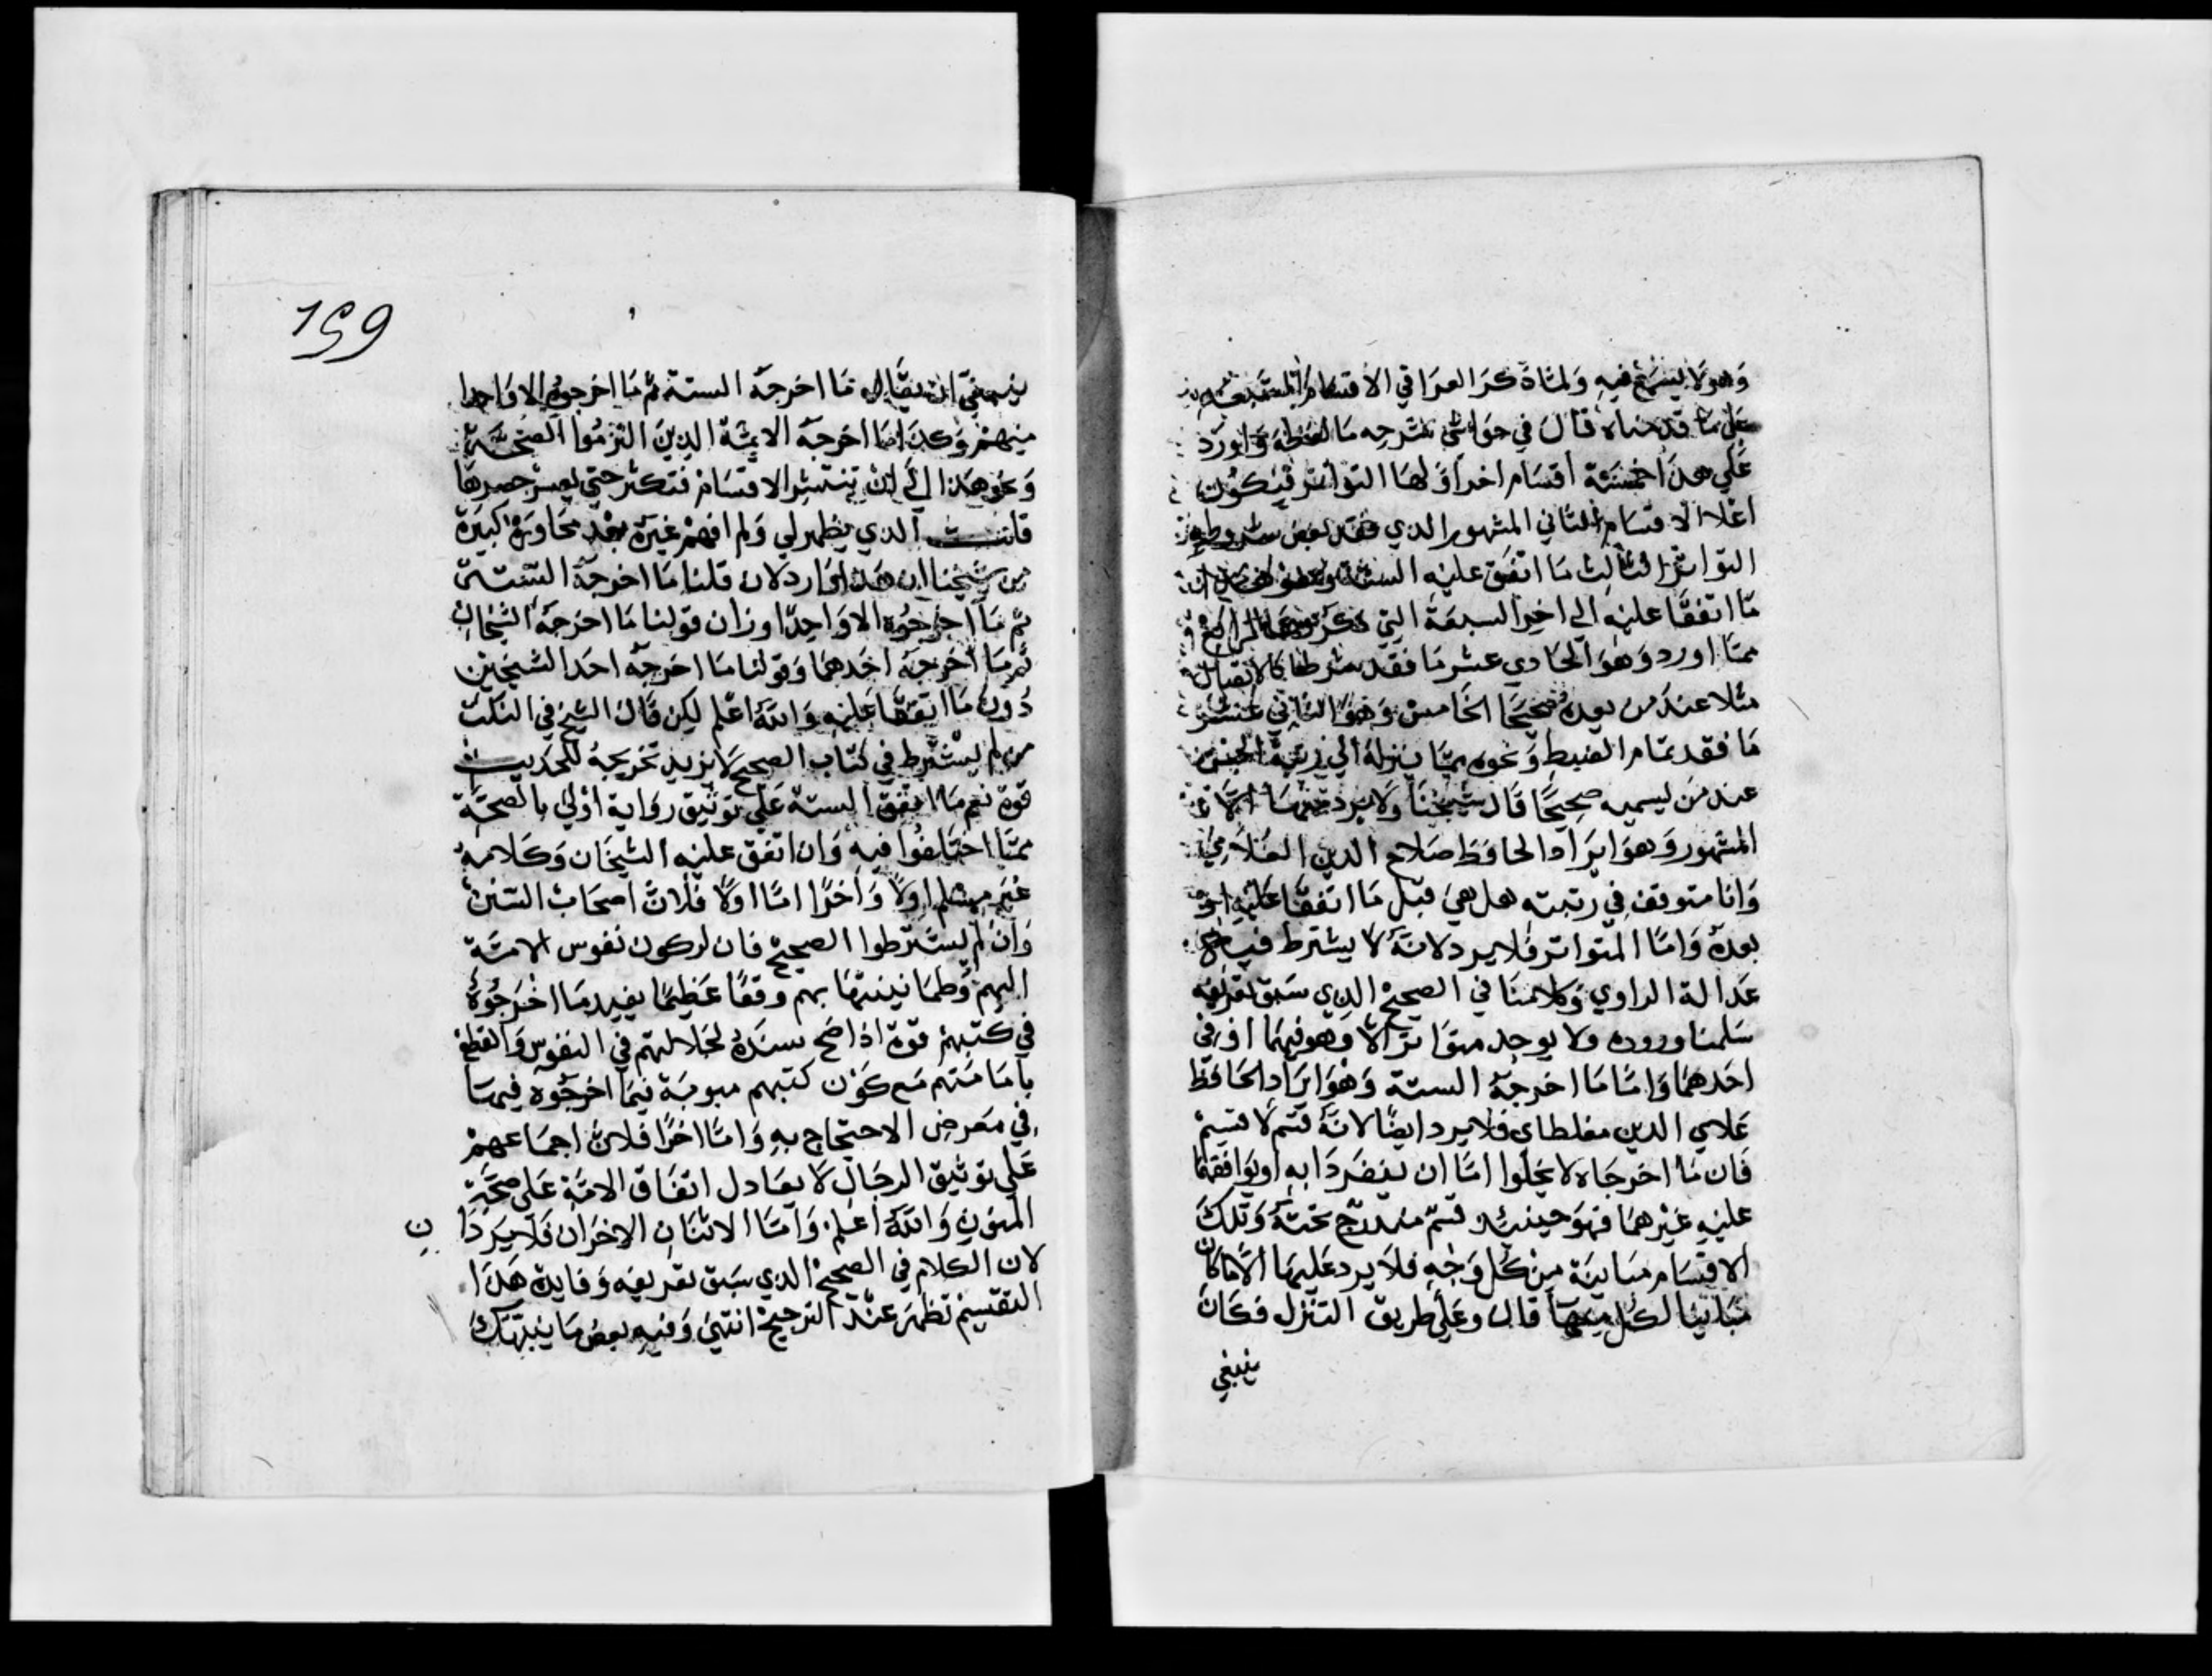 وهو لا يسمع فيه ولما ذكر العراقي الاقسام السبعة
على ما قدمناه قال في حواشي شرحه ما لفظه واورد
على هذا خمسة اقسام اخر اولها التواتر فيكون
اعلا الاقسام الثاني المشهور الذي فقد بعض شروط
التواتر الثالث ما اتفق عليه الستة
ما اتفقا عليه الى اخر السبعة التي الرابع
مما اورد وهو الحادي عشر ما فقد شرطا كالاتصال
مثلا عند من يعده صحيحا الخامس وهو الثاني عشر
ما فقد تمام الضبط ونحوه مما ينزله الى رتبة الحسن
عند من يسميه صحيحا قال شيخنا ولا يرد منها الا
المشهور وهو ايراد الحافظ صلاح الدين العلائي
وانا متوقف في رتبته هل هي قبل ما اتفقا عليه او
بعده واما المتواتر فلا يرد لانه لا يشترط فيه
عدالة الراوي وكلامنا في الصحيح الذي سبق تعريفه
سلمنا وروده ولا يوجد متواتر الا وهو فيهما او في
احدهما واما ما اخرجه الستة وهو ايراد الحافظ
علاي الدين مغلطاى فلا يرد ايضا لانه قسم لا قسيم
فان ما اخرجاه لا يخلوا اما ان ينفردا به او يوافقهما
عليه غيرهما فهو حينئذ قسم مندرج تحته وتلك
الاقسام مباينة من كل وجه فلا يرد عليها الا ما كان
مباينا لكل منها قال وعلى طريق التنزل فكان
ينبغي
159
ينبغي ان يقال ما اخرجه الستة ثم ما اخرجوه الا واحدا
منهم وكذا ما اخرجه الايمة الذين التزموا الصحة
ونحو هذا الى ان تنتشر الاقسام فتكثر حتى يعسر حصرها
قلت الذي يظهر لي ولم افهم غيره بعد محاورة كبيرة
من شيخنا ان هذا وارد لان قلنا ما اخرجه الستة
ثم ما اخرجوه الا واحدا وزان قولنا ما اخرجه الشيخان
ثم ما اخرجه احدهما وقولنا ما اخرجه احد الشيخين
دون ما اتفقا عليه والله اعلم لكن قال الشيخ في النكت
من لم يشترط في كتاب الصحيح لا يزيد تخريجه للحديث
قوة نعم ما اتفق الستة على توثيق رواية اولى بالصحة
مما اختلفوا فيه وان اتفق عليه الشيخان وكلامه
غير مسلم اولا واخرا اما اولا فلان اصحاب السنن
وان لم يشترطوا الصحيح فان لركون نفوس الامة
اليهم وطمانينتها بهم وقعا عظيما يفيد ما اخرجوه
في كتبهم قوة اذا صح سنده لجلالتهم في النفوس والقطع
بامامتهم مع كون كتبهم مبوبة فيما اخرجوه فيها
في معرض الاحتجاج به واما اخرا فلان اجماعهم
على توثيق الرجال لا يعادل اتفاق الامة على صحة
المتون والله اعلم واما الاثنان الاخران فلا يردا ن
لان الكلام في الصحيح الذي سبق تعريفه وفايدة هذا
التقسيم تظهر عند الترجيح انتهى وفيه بعض ما ينبهك